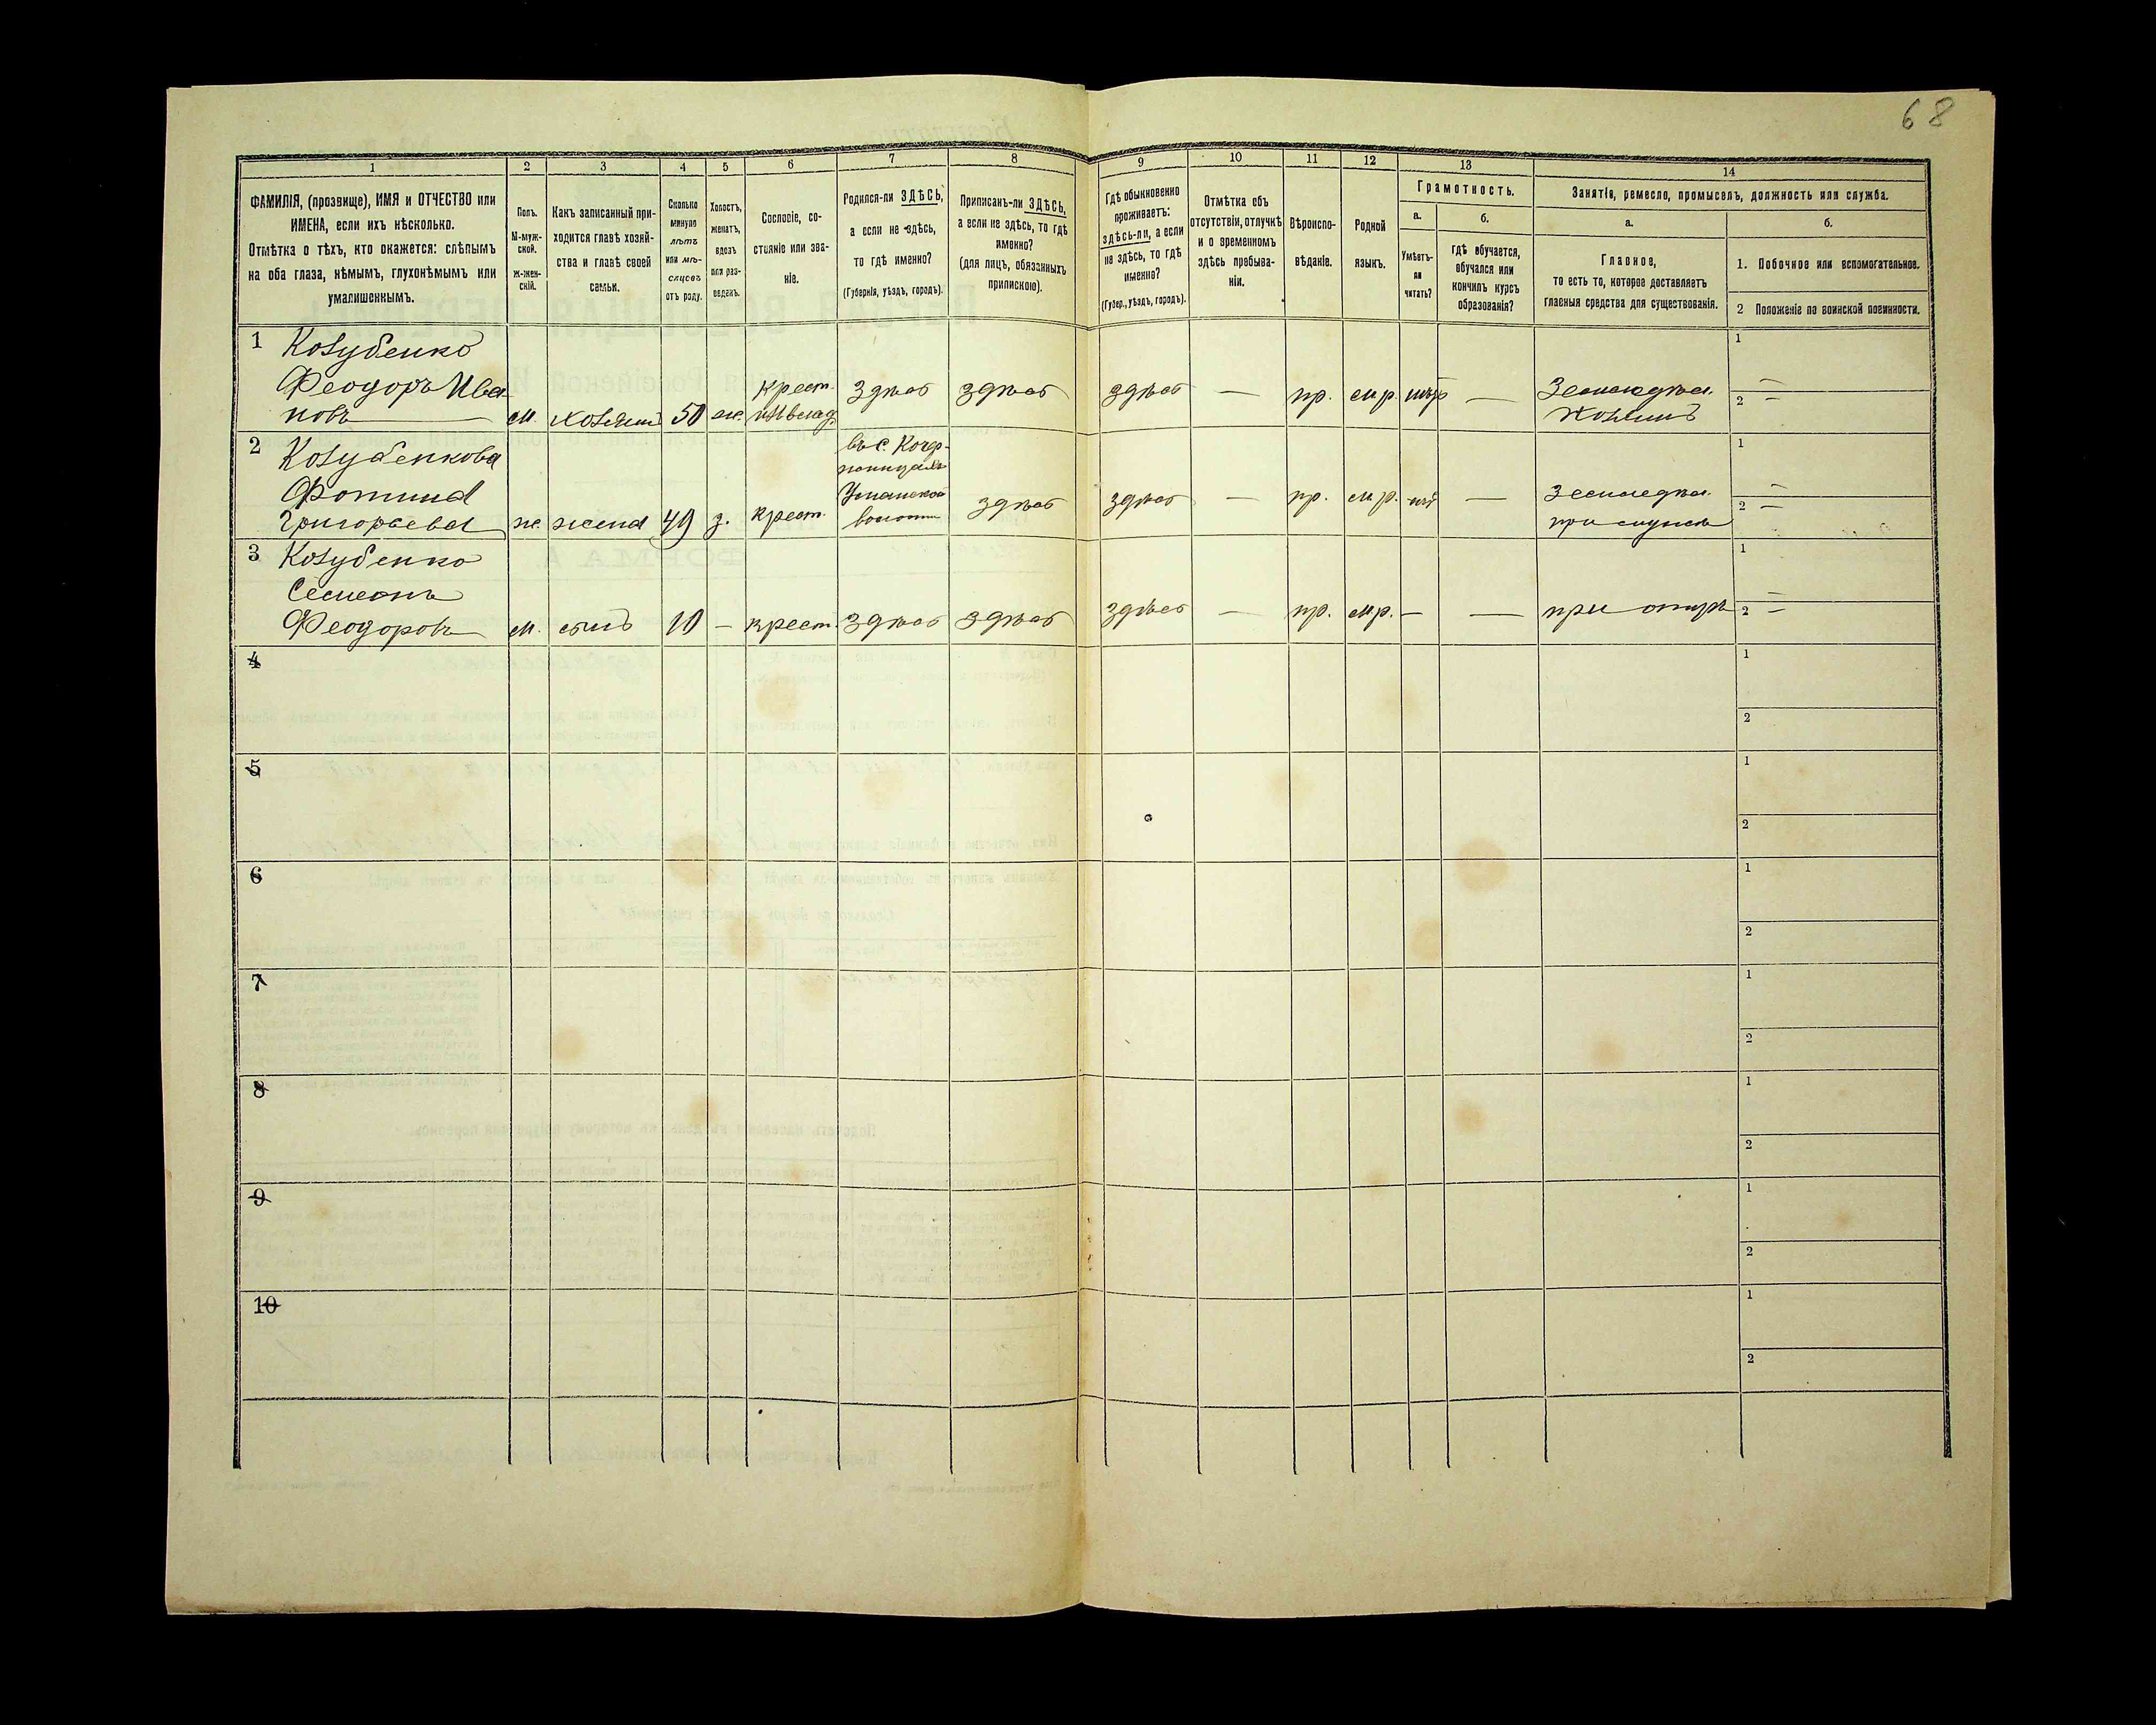 68
1
2
3
4
5
6
7
8
9
10
11
12
13
14
ФАМИЛІЯ, (прозвище), ИМЯ и ОТЧЕСТВО или
ИМЕНА, если ихъ нѣсколько.
Отмѣтка о тѣхъ, кто окажется: слѣпымъ
на оба глаза, нѣмымъ, глухонѣмымъ или
умалишеннымъ.
Полъ.
М-муж-
ской.
ж-жен-
скій.
Какъ записанный при-
ходится главѣ хозяй-
ства и главѣ своей
семьи.
Сколько
минуло
лѣтъ
или мѣ-
сяцевъ
отъ роду.
Холостъ,
женатъ,
вдовъ
или раз-
веденъ.
Сословіе, со-
стояніе или зва-
ніе.
Родился-ли ЗДѢСЬ,
а если не здѣсь,
то гдѣ именно?
(Губернія, уѣздъ, городъ).
Приписанъ-ли ЗДѢСЬ,
а если не здѣсь, то гдѣ
именно?
(для лицъ, обязанныхъ
припискою).
Гдѣ обыкновенно
проживаетъ:
здѣсь-ли, а если
не здѣсь, то гдѣ
именно?
(Губер., уѣздъ, городъ).
Отмѣтка объ
отсутствіи, отлучкѣ
и о временномъ
здѣсь пребыва-
ніи.
Вѣроиспо-
вѣданіе.
Родной
языкъ.
Грамотность.
а.
Умѣетъ-
ли
читать?
б.
гдѣ обучается,
обучался или
кончилъ курсъ
образованія?
Занятіе, ремесло, промыселъ, должность или служба.
а.
Главное,
то есть то, которое доставляетъ
главныя средства для существованія.
б.
1. Побочное или вспомогательное.
2 Положеніе по воинской повинности.
1 Козубенко
Феодоръ Ива
новъ
м.
хозяинъ
50
же.
крест.
здѣсь
здѣсь
здѣсь
—
пр.
мр.
нѣтъ
—
Земледѣл.
хозяинъ
1 —
2 —
2 Козубенкова
Фотина
Григорьева
ж.
жена
49
з.
крест.
въ с.
Уманской
волости
здѣсь
здѣсь
—
пр.
мр.
нѣт
—
земледѣл.
при мужѣ
1 —
2 —
3 Козубенко
Семеонъ
Феодоровъ
м.
сынъ
10
—
крест.
здѣсь
здѣсь
здѣсь
—
пр.
мр.
—
—
при отцѣ
1
2 —
4
1
2
5
1
2
6
1
2
7
1
2
8
1
2
9
1
2
10
1
2